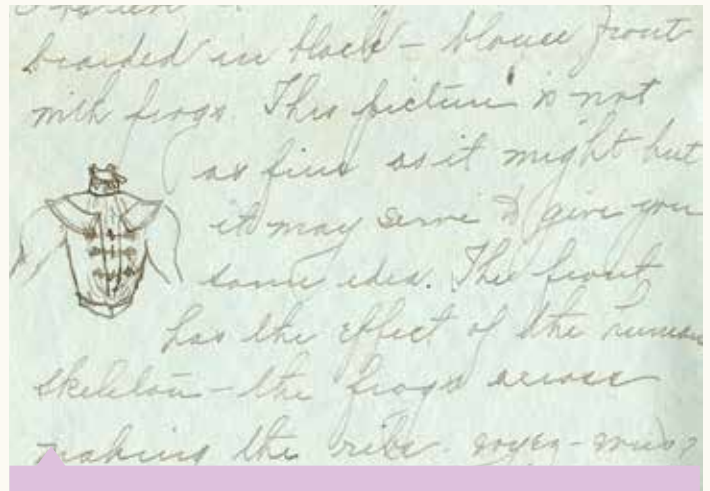 braided in black - blouse front
with frogs. This picture is not
as fine as it might but
it may serve to give you
some idea. The front
has the effect of the human
skeleton - the frogs across
making the ribs. voyez-vous?